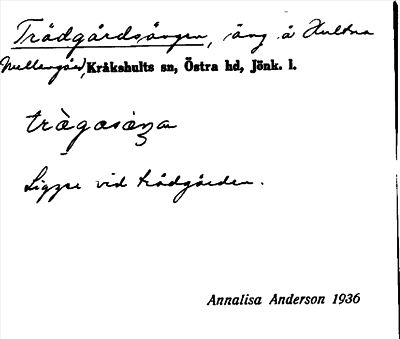 Trädgårdsängen, äng å Hultna
Mellangård, Kråkshults sn, Östra hd, Jönk. l.
trägasäŋa
Ligger vid trädgården.
Annalisa Anderson 1936